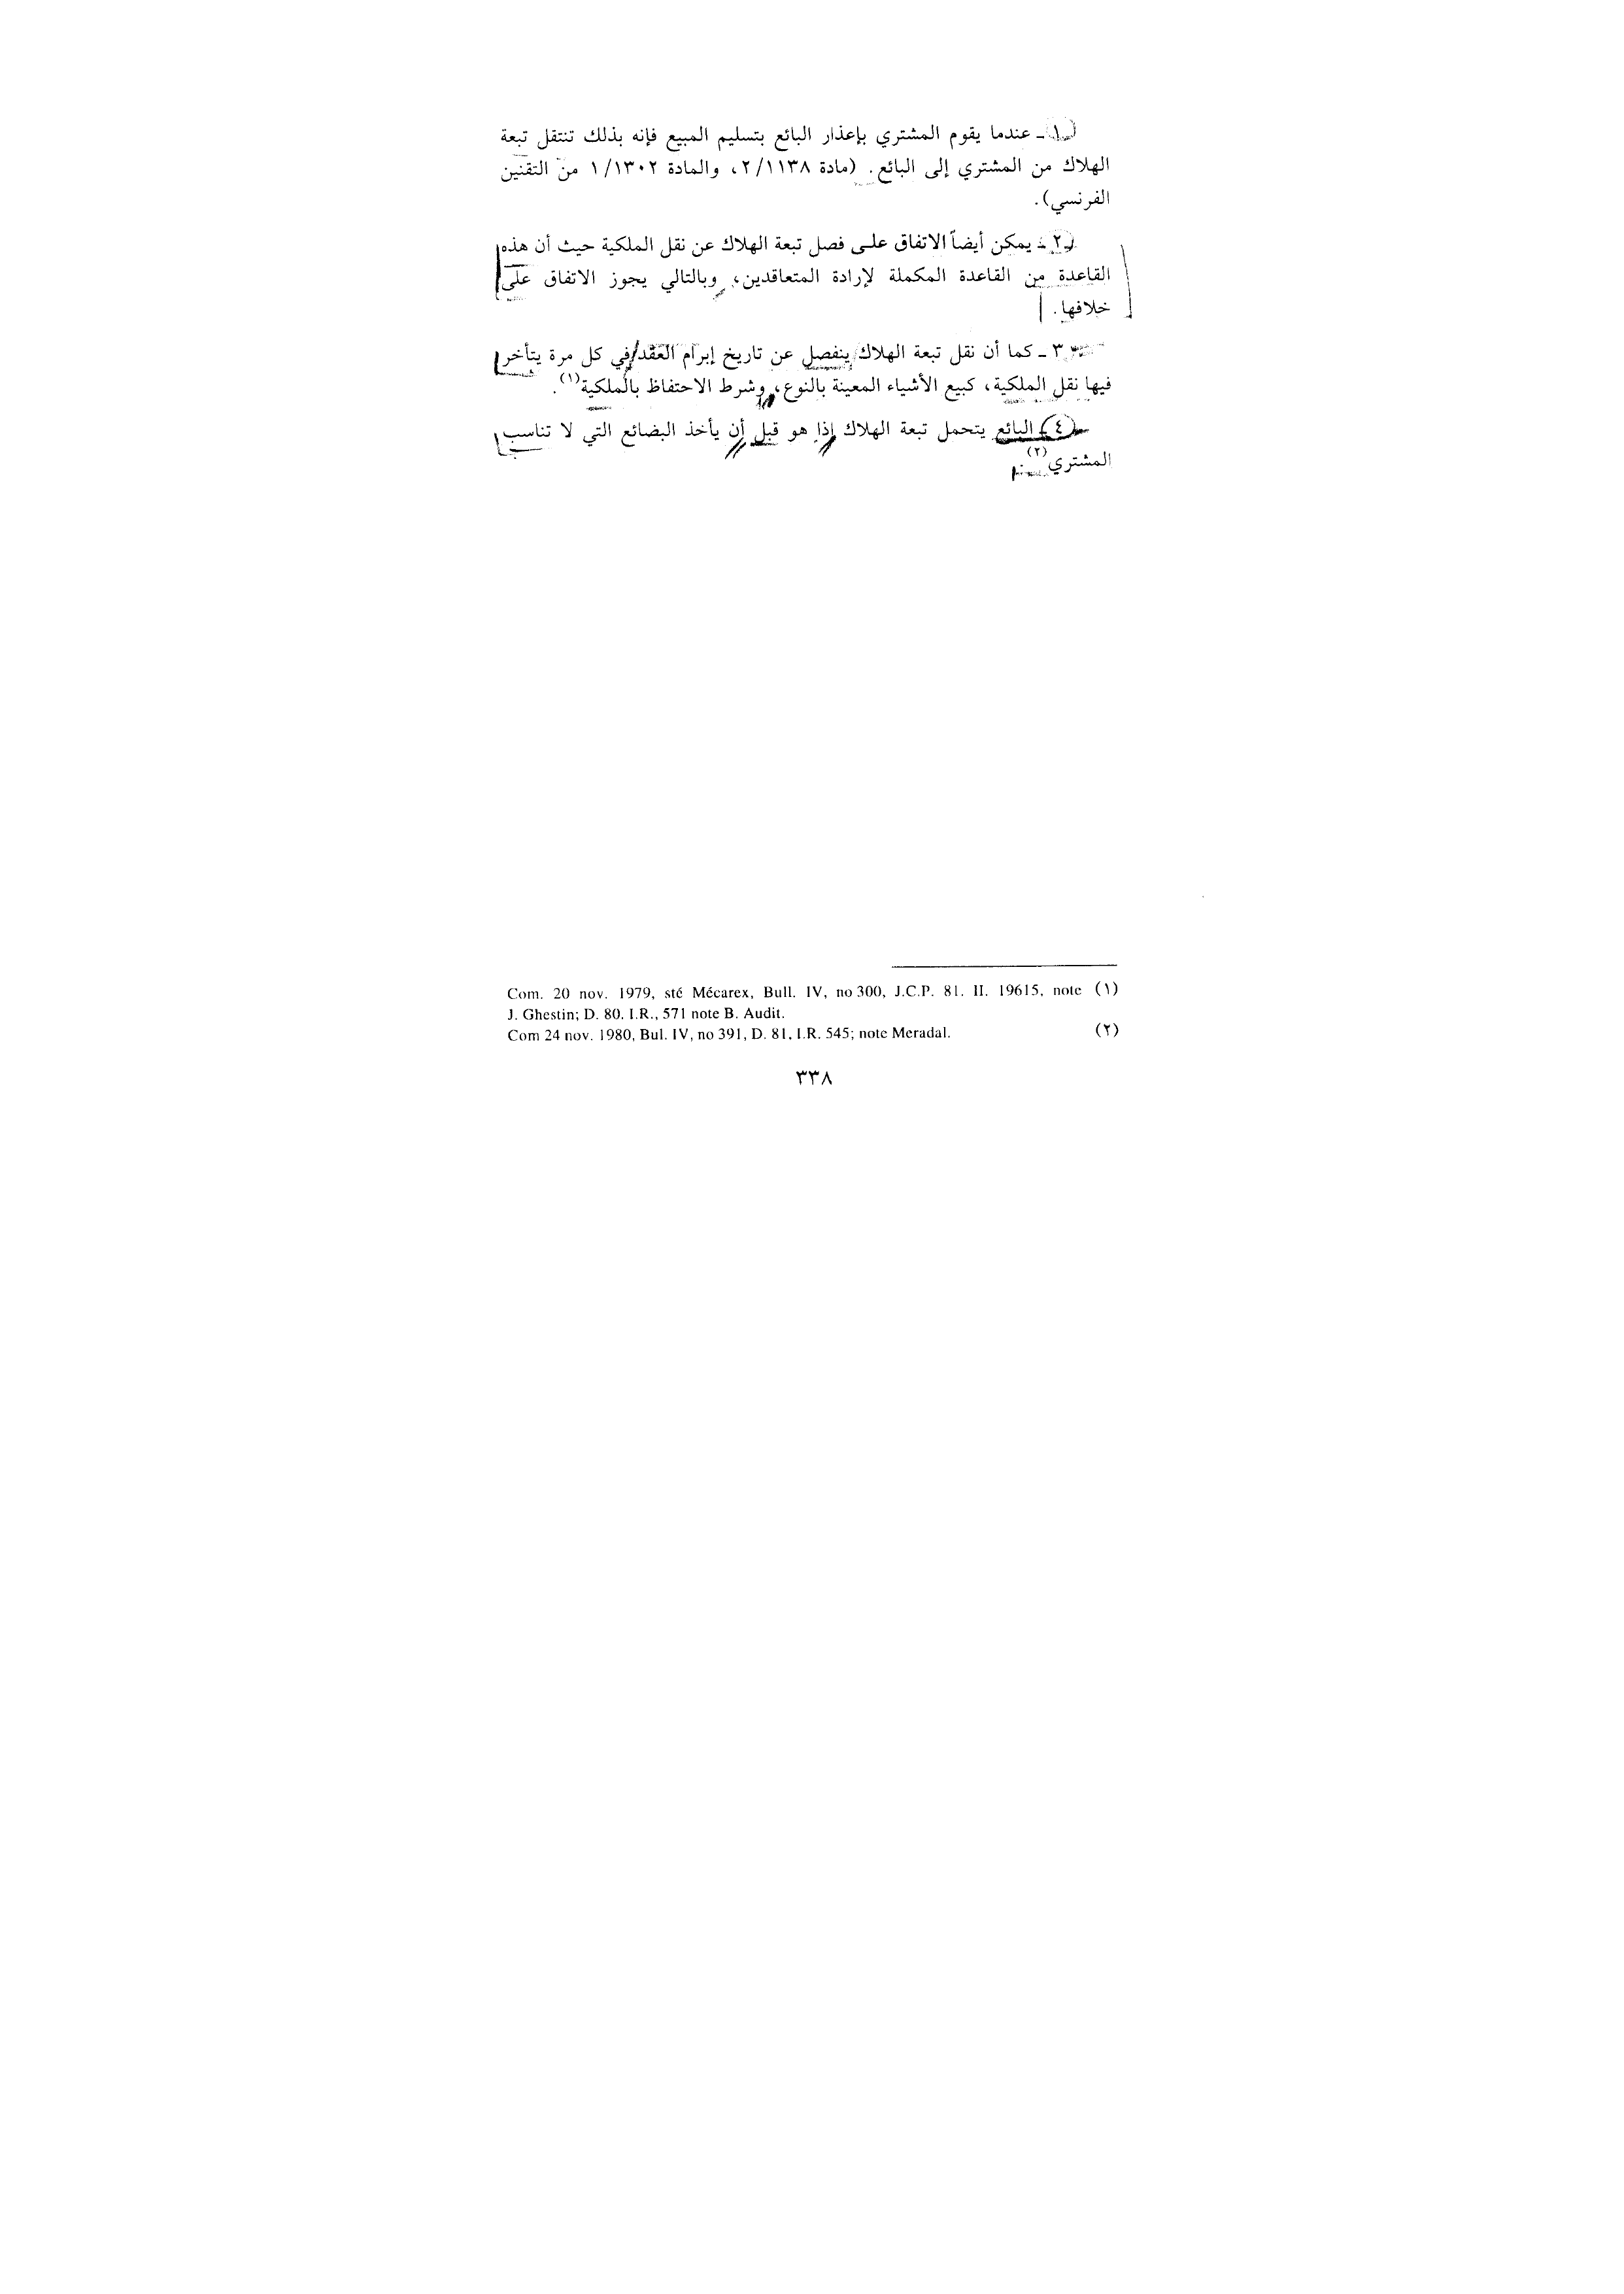 ١ ـ عندما يقوم المشتري بإعذار البائع بتسليم المبيع فإنه بذلك تنتقل تبعة
الهلاك من المشتري إلى البائع. (مادة ٢/١١٣٨، والمادة ١/١٣٠٢ من التقنين
الفرنسي).
٢ ـ يمكن أيضاً الاتفاق على فصل تبعة الهلاك عن نقل الملكية حيث أن هذه
القاعدة من القاعدة المكملة لإرادة المتعاقدين، وبالتالي يجوز الاتفاق على
خلافها.
٣ ـ كما أن نقل تبعة الهلاك ينفصل عن تاريخ إبرام العقد في كل مرة يتأخر
فيها نقل الملكية، كبيع الأشياء المعينة بالنوع، وشرط الاحتفاظ بالملكية(١).
٤ ـ البائع يتحمل تبعة الهلاك إذا هو قبل أن يأخذ البضائع التي لا تناسب
المشتري(٢)
(١) Com. 20 nov. 1979, sté Mécarex, Bull. IV, no 300, J.C.P. 81. II. 19615, note
J. Ghestin; D. 80. I.R., 571 note B. Audit.
(٢) Com 24 nov. 1980, Bul. IV, no 391, D. 81. I.R. 545; note Meradal.
٣٣٨